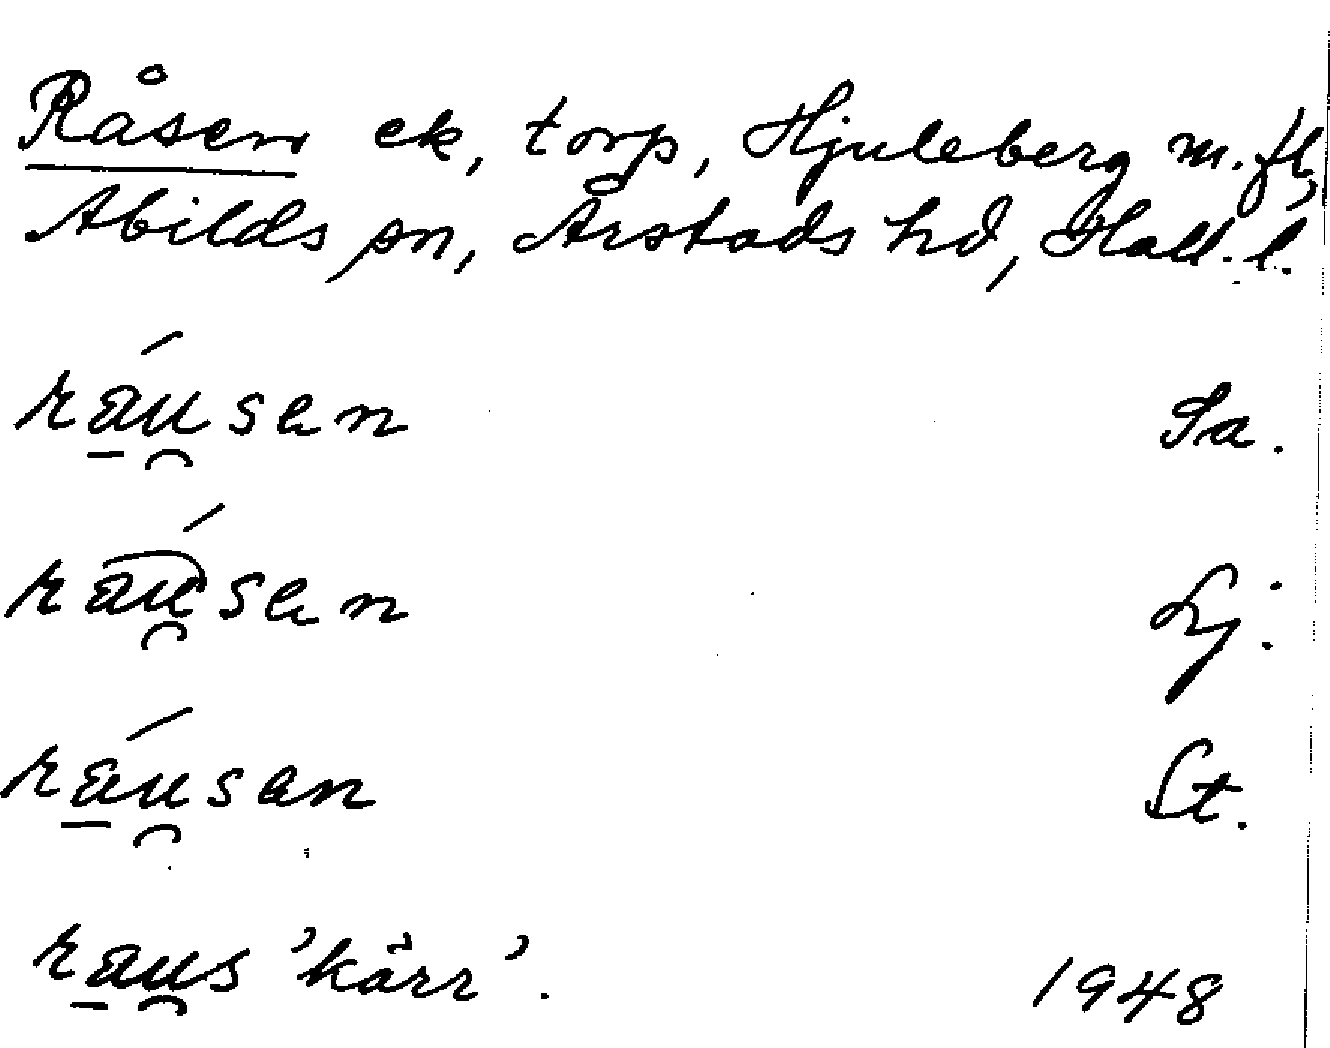 Råsen ek, torp, Hjuleberg m.fl,
Abilds sn, Årstads hd, Hall. l.
ráu̯sen Sa.
ráu̯sen Lj.
ráu̯san St.
rau̯s 'kärr'. 1948